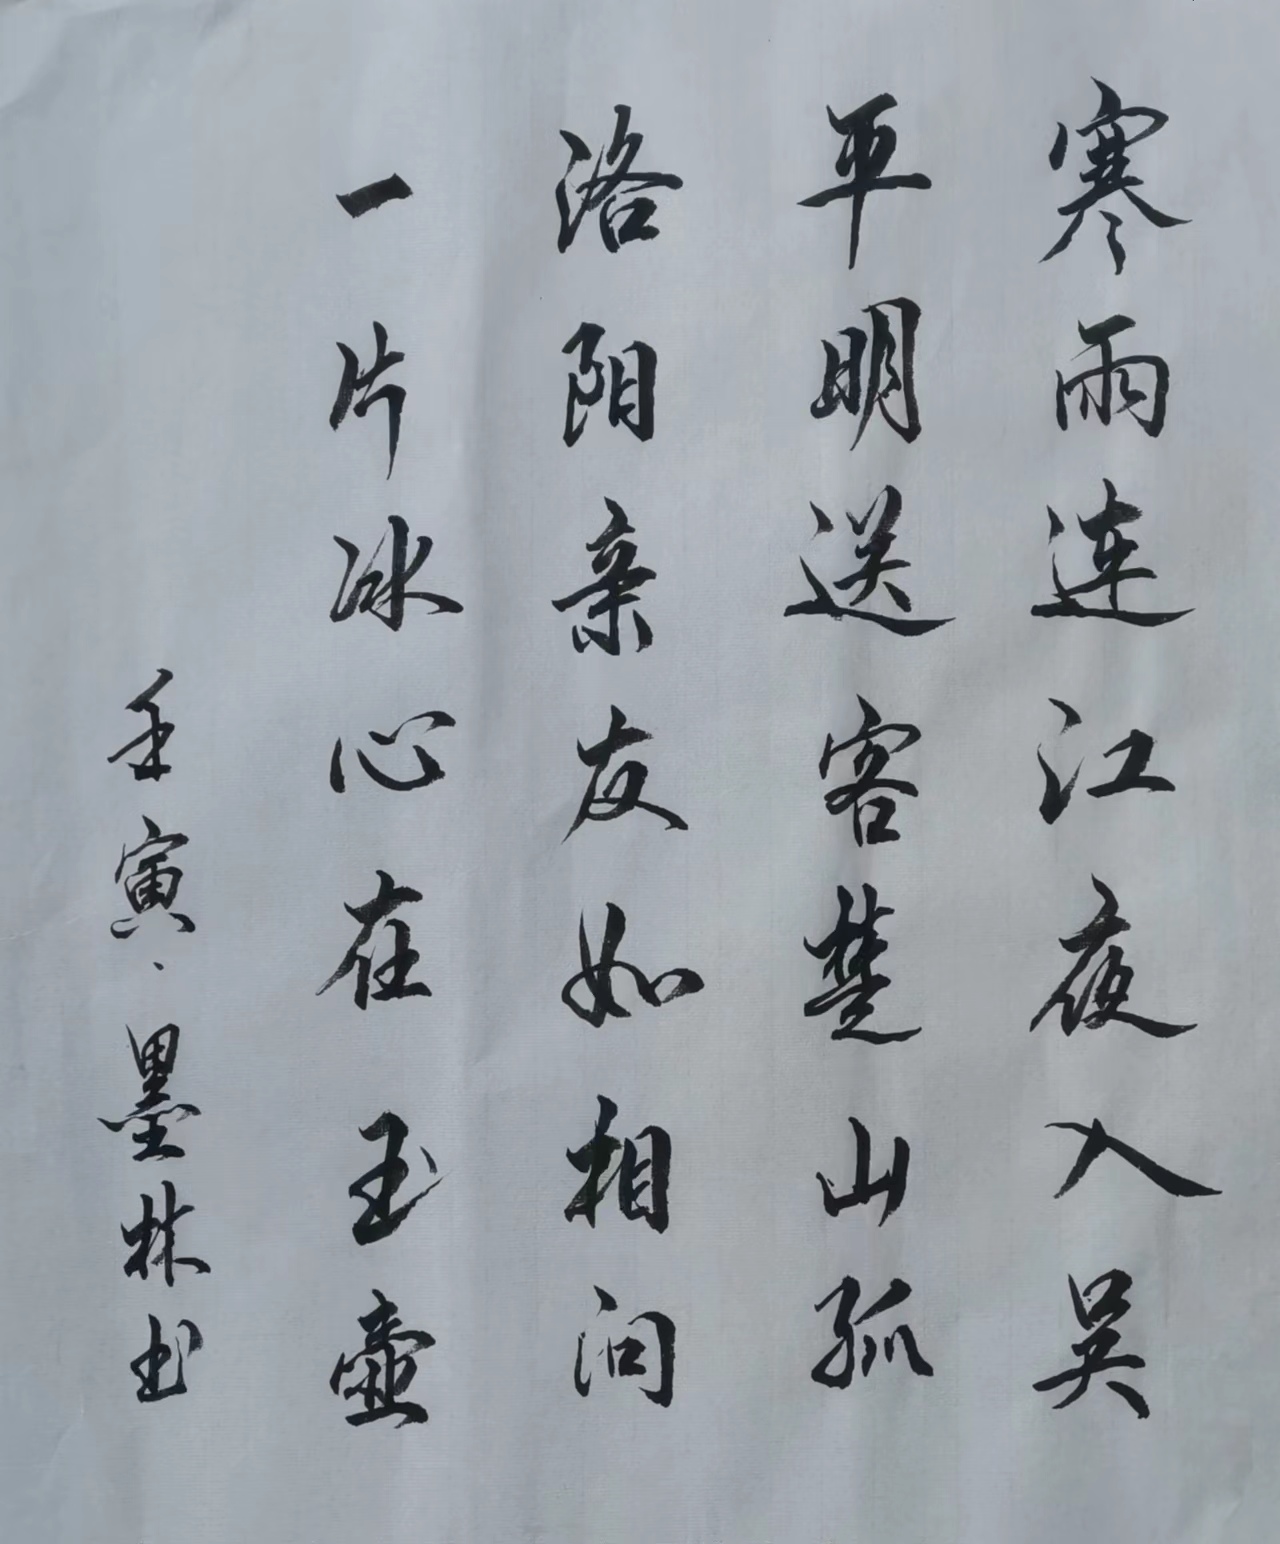 寒雨连江夜入吴
平明送客楚山孤
洛阳亲友如相问
一片冰心在玉壶
壬寅、墨林书